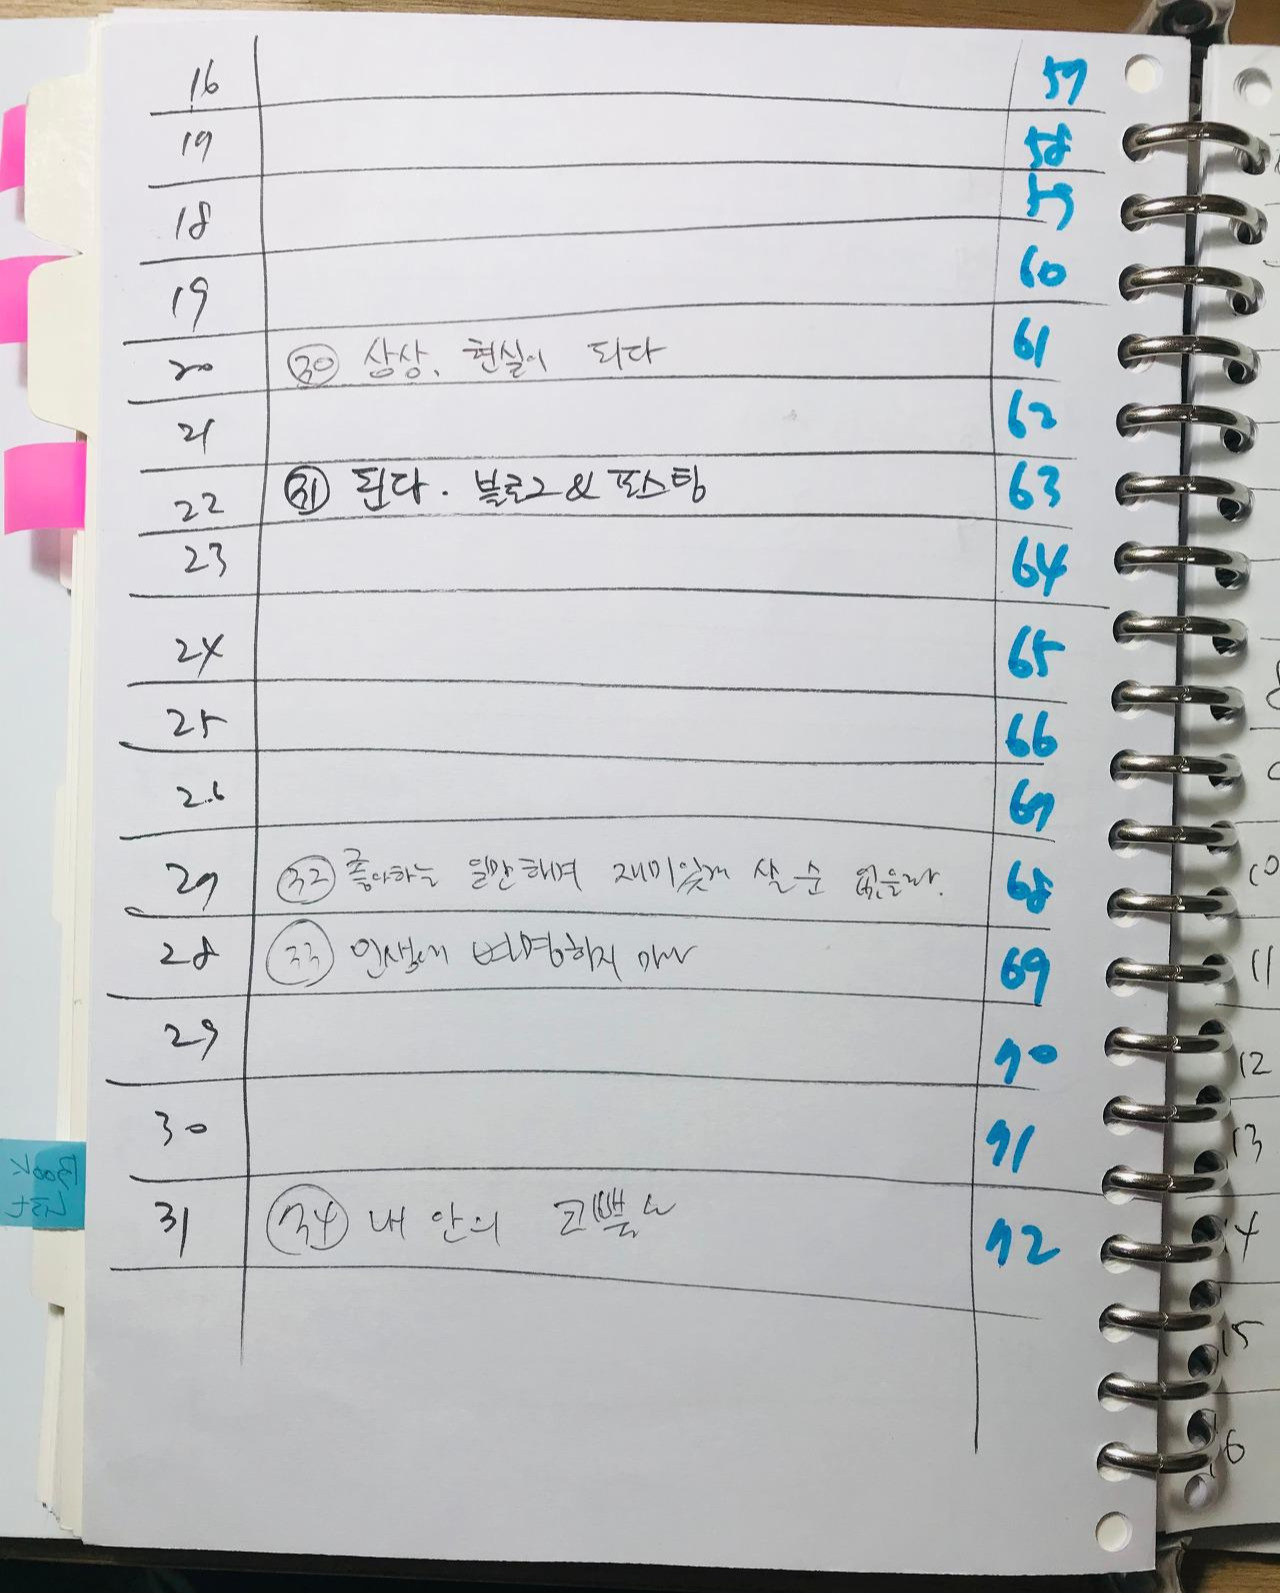 16 57
17 58
18 59
19 60
20 ㉚ 상상, 현실이 되다 61
21 62
22 ㉛ 된다. 블로그 & 포스팅 63
23 64
24 65
25 66
26 67
27 ㉜ 좋아하는 일만하며 재미있게 살 순 없을까. 68
28 ㉝ 인생에 변명하지 마라 69
29 70
30 71
31 ㉞ 내 안의 코뿔소 72
10
11
12
13
14
15
16
Book